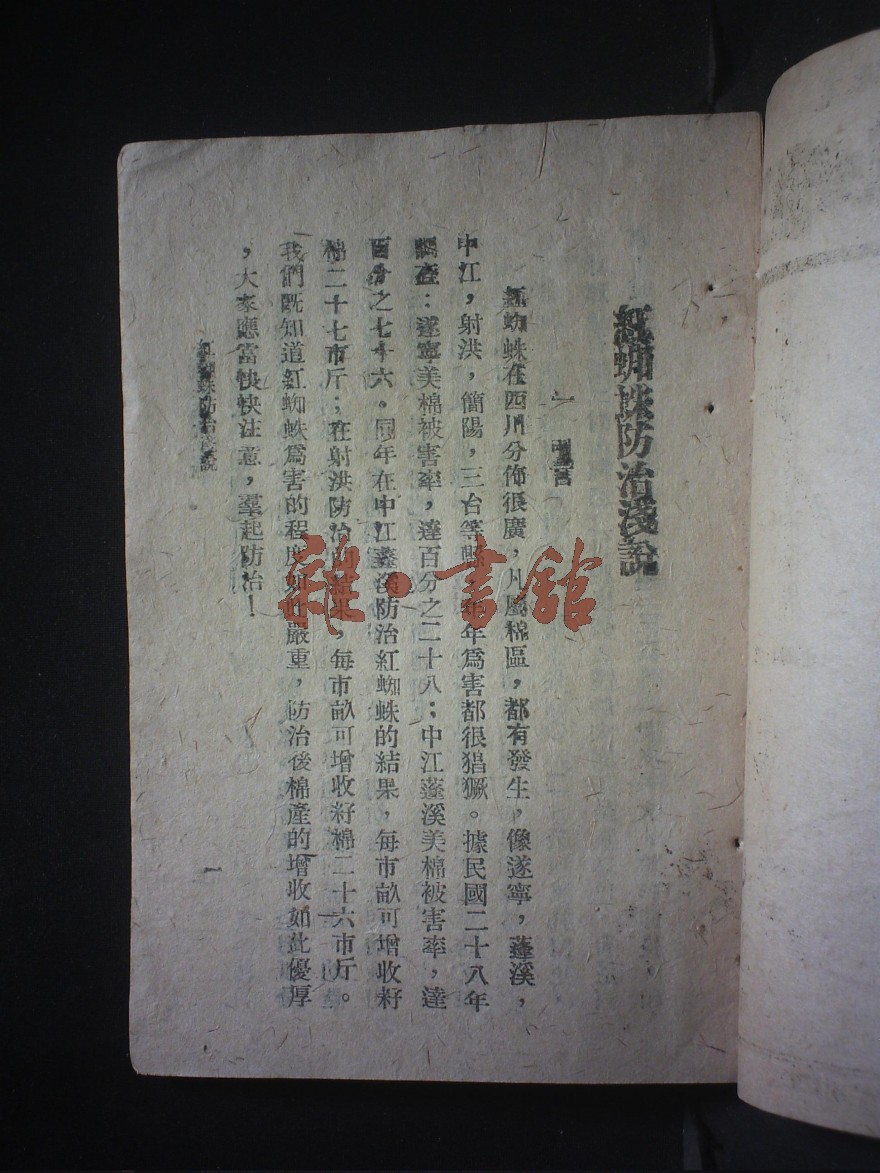 紅蜘蛛防治淺說
一 引言
紅蜘蛛在四川分佈很廣，凡屬棉區，都有發生，像遂寧，蓬溪，
中江，射洪，簡陽，三台等縣，年年為害都很猖獗。據民國二十八年
調查：遂寧美棉被害率，達百分之二十八；中江蓬溪美棉被害率，達
百分之七十六。同年在中江蓬溪防治紅蜘蛛的結果，每市畝可增收籽
棉二十七市斤；在射洪防治的結果，每市畝可增收籽棉二十六市斤。
我們既知道紅蜘蛛為害的程度如此嚴重，防治後棉產的增收如此優厚
，大家應當快快注意，羣起防治！
紅蜘蛛防治淺說
一
雜·書館